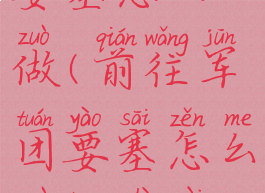 zuò qián wǎng jūn
做(前往军
tuán yào sāi zěn me
团要塞怎么